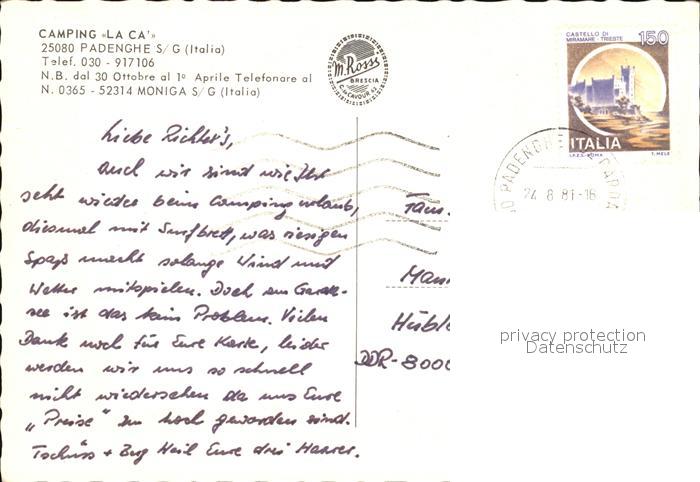 CAMPING «LA CA'»
25080 PADENGHE S/G (Italia)
Telef. 030 - 917106
N.B. dal 30 Ottobre al 1º Aprile Telefonare al
N. 0365 - 52314 MONIGA S/G (Italia)
M. Rossi
BRESCIA
C. CAVOUR
CASTELLO DI
MIRAMARE - TRIESTE
150
ITALIA
I.P.Z.S. - ROMA T. MELE
PADENGHE
24 8 81-16
Liebe Richter's,
auch wir sind wie Ihr
seht wieder beim Campingurlaub,
diesmal mit Surfbrett, was riesigen
Spaß macht solange Wind und
Wetter mitspielen. Doch am Garda-
see ist das kein Problem. Vielen
Dank noch für Eure Karte, leider
werden wir uns so schnell
nicht wiedersehen da uns Eure
„Preise" zu hoch geworden sind.
Tschüss + Berg Heil Eure drei
Fam.
Hüble
DDR-800
privacy protection
Datenschutz